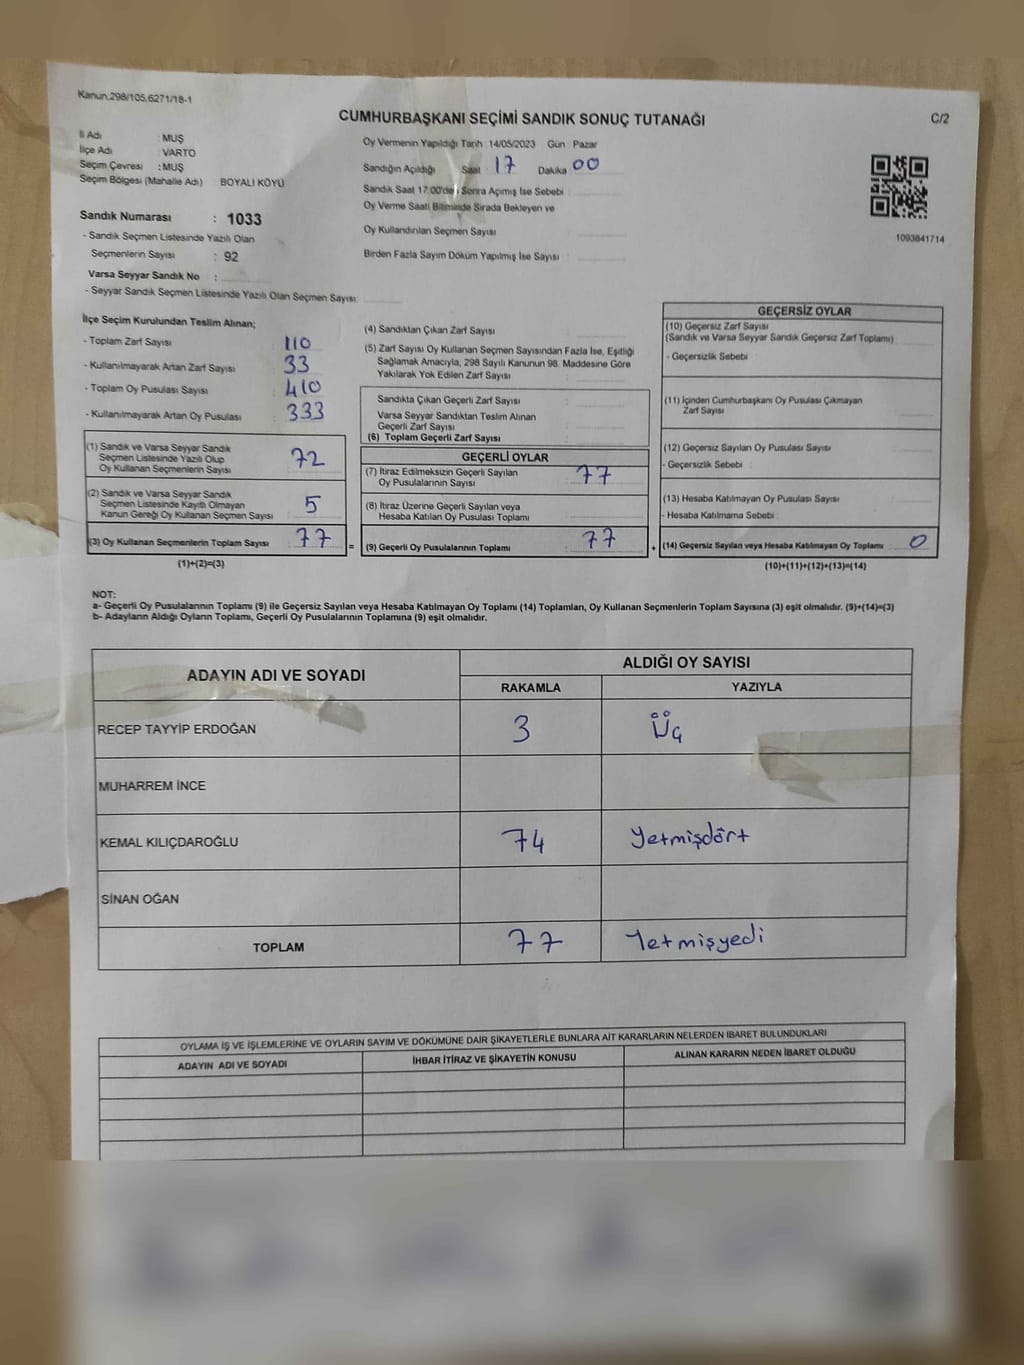 Kanun.298/105,6271/18-1
CUMHURBAŞKANI SEÇİMİ SANDIK SONUÇ TUTANAĞI
C/2
İl Adı : MUŞ
İlçe Adı : VARTO
Seçim Çevresi : MUŞ
Seçim Bölgesi (Mahalle Adı) BOYALI KÖYÜ
Sandık Numarası : 1033
- Sandık Seçmen Listesinde Yazılı Olan
Seçmenlerin Sayısı : 92
Varsa Seyyar Sandık No :
- Seyyar Sandık Seçmen Listesinde Yazılı Olan Seçmen Sayısı
Oy Vermenin Yapıldığı Tarih :14/05/2023 Gün : Pazar
Sandığın Açıldığı Saat : 17 Dakika 00
Sandık Saat 17:00'den Sonra Açımış İse Sebebi
Oy Verme Saati Bitiminde Sırada Bekleyen ve
Oy Kullandırılan Seçmen Sayısı
Birden Fazla Sayım Döküm Yapılmış İse Sayısı
1093841714
İlçe Seçim Kurulundan Teslim Alınan;
- Toplam Zarf Sayısı : 110
- Kullanılmayarak Artan Zarf Sayısı : 33
- Toplam Oy Pusulası Sayısı : 410
- Kullanılmayarak Artan Oy Pusulası : 333
(1) Sandık ve Varsa Seyyar Sandık
Seçmen Listesinde Yazılı Olup
Oy Kullanan Seçmenlerin Sayısı : 72
(2) Sandık ve Varsa Seyyar Sandık
Seçmen Listesinde Kayıtlı Olmayan
Kanun Gereği Oy Kullanan Seçmen Sayısı : 5
(3) Oy Kullanan Seçmenlerin Toplam Sayısı : 77
(1)+(2)=(3)
(4) Sandıktan Çıkan Zarf Sayısı
(5) Zarf Sayısı Oy Kullanan Seçmen Sayısından Fazla İse, Eşitliği
Sağlamak Amacıyla, 298 Sayılı Kanunun 98. Maddesine Göre
Yakılarak Yok Edilen Zarf Sayısı :
Sandıkta Çıkan Geçerli Zarf Sayısı :
Varsa Seyyar Sandıktan Teslim Alınan
Geçerli Zarf Sayısı :
(6) Toplam Geçerli Zarf Sayısı :
GEÇERLİ OYLAR
(7) İtiraz Edilmeksizin Geçerli Sayılan
Oy Pusulalarının Sayısı : 77
(8) İtiraz Üzerine Geçerli Sayılan veya
Hesaba Katılan Oy Pusulası Toplamı :
= (9) Geçerli Oy Pusulalarının Toplamı : 77 +
GEÇERSİZ OYLAR
(10) Geçersiz Zarf Sayısı
(Sandık ve Varsa Seyyar Sandık Geçersiz Zarf Toplamı) :
- Geçersizlik Sebebi :
(11) İçinden Cumhurbaşkanı Oy Pusulası Çıkmayan
Zarf Sayısı
(12) Geçersiz Sayılan Oy Pusulası Sayısı :
- Geçersizlik Sebebi :
(13) Hesaba Katılmayan Oy Pusulası Sayısı
- Hesaba Katılmama Sebebi :
(14) Geçersiz Sayılan veya Hesaba Katılmayan Oy Toplamı : 0
(10)+(11)+(12)+(13)=(14)
NOT:
a- Geçerli Oy Pusulalarının Toplamı (9) ile Geçersiz Sayılan veya Hesaba Katılmayan Oy Toplamı (14) Toplamları, Oy Kullanan Seçmenlerin Toplam Sayısına (3) eşit olmalıdır. (9)+(14)=(3)
b- Adayların Aldığı Oyların Toplamı, Geçerli Oy Pusulalarının Toplamına (9) eşit olmalıdır.
ADAYIN ADI VE SOYADI
ALDIĞI OY SAYISI
RAKAMLA YAZIYLA
RECEP TAYYİP ERDOĞAN 3 Üç
MUHARREM İNCE
KEMAL KILIÇDAROĞLU 74 Yetmişdört
SİNAN OĞAN
TOPLAM 77 Yetmişyedi
OYLAMA İŞ VE İŞLEMLERİNE VE OYLARIN SAYIM VE DÖKÜMÜNE DAİR ŞİKAYETLERLE BUNLARA AİT KARARLARIN NELERDEN İBARET BULUNDUKLARI
ADAYIN ADI VE SOYADI İHBAR İTİRAZ VE ŞİKAYETİN KONUSU ALINAN KARARIN NEDEN İBARET OLDUĞU